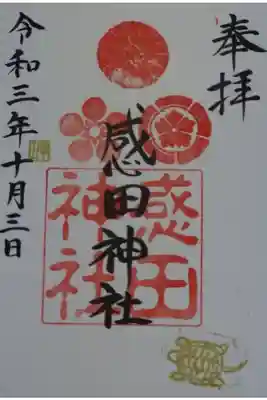 奉拝
感田神社
感田
神社
令和三年十月三日